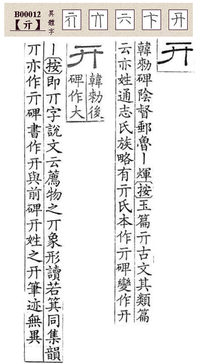 B00012
【亓】
異體字
亣 亦 六 卞 幵
亓
韓勑碑陰督郵魯丨煇按玉篇亓古文其類篇
云亦姓通志氏族略有亓氏本作亓碑變作幵
亓
韓勑後
碑作大
丨按即丌字說文云薦物之丌象形讀若箕同集韻
丌亦作亓碑書作幵與前碑亓姓之幵筆迹無異